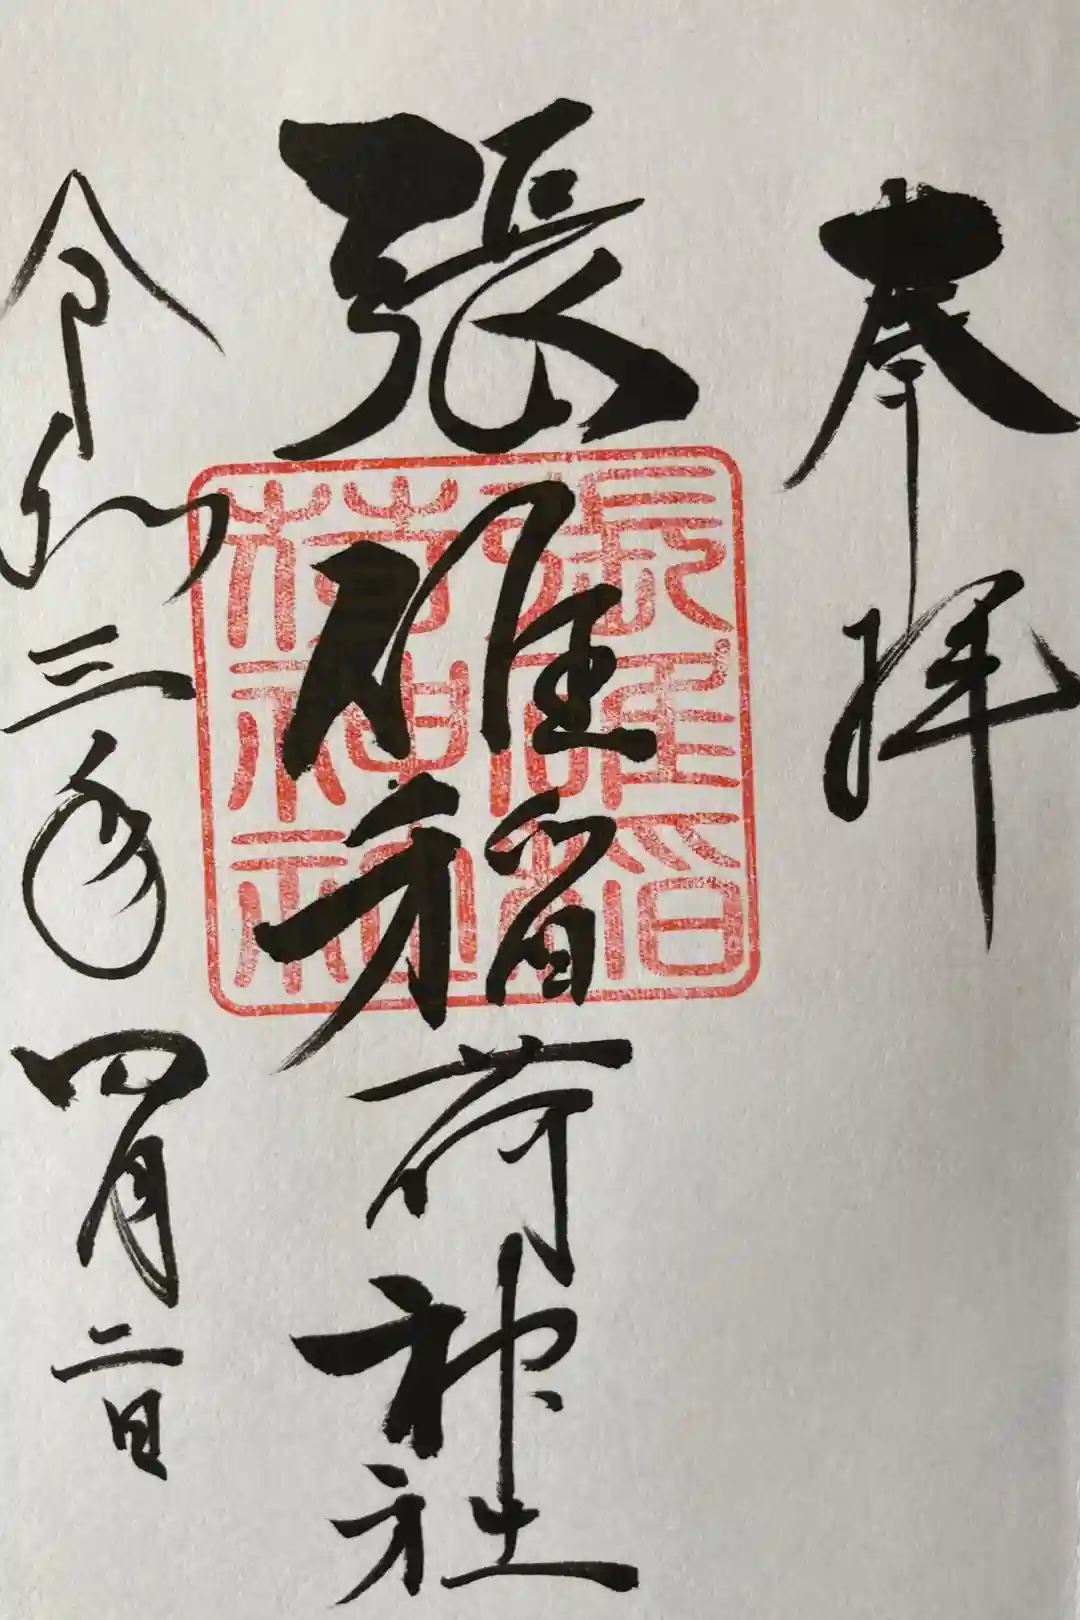 奉拝
張碓稲荷神社
令和三年四月二日
張碓稲
荷神社